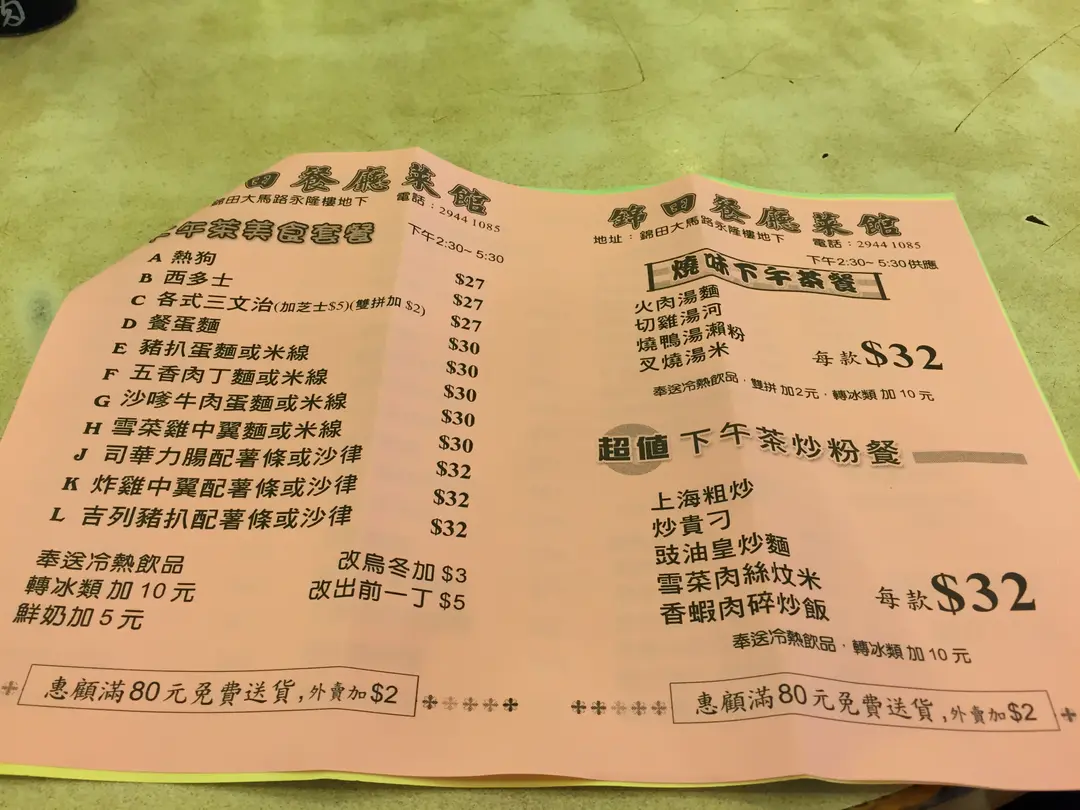 田餐廳菜館
錦田大馬路永隆樓地下 電話：2944 1085
午茶美食套餐 下午2:30~5:30
A 熱狗 $27
B 西多士 $27
C 各式三文治(加芝士$5)(雙拼加 $2) $27
D 餐蛋麵 $30
E 豬扒蛋麵或米線 $30
F 五香肉丁麵或米線 $30
G 沙嗲牛肉蛋麵或米線 $30
H 雪菜雞中翼麵或米線 $30
J 司華力腸配薯條或沙律 $32
K 炸雞中翼配薯條或沙律 $32
L 吉列豬扒配薯條或沙律 $32
奉送冷熱飲品 改烏冬加 $3
轉冰類 加 10 元 改出前一丁 $5
鮮奶加 5 元
惠顧滿80元免費送貨,外賣加$2
錦田餐廳菜館
地址：錦田大馬路永隆樓地下 電話：2944 1085
下午2:30~5:30供應
燒味下午茶餐
火肉湯麵
切雞湯河
燒鴨湯瀨粉
叉燒湯米
每款$32
奉送冷熱飲品，雙拼 加2元，轉冰類 加 10 元
超值 下午茶炒粉餐
上海粗炒
炒貴刁
豉油皇炒麵
雪菜肉絲炆米
香蝦肉碎炒飯
每款$32
奉送冷熱飲品，轉冰類 加 10 元
惠顧滿80元免費送貨,外賣加$2